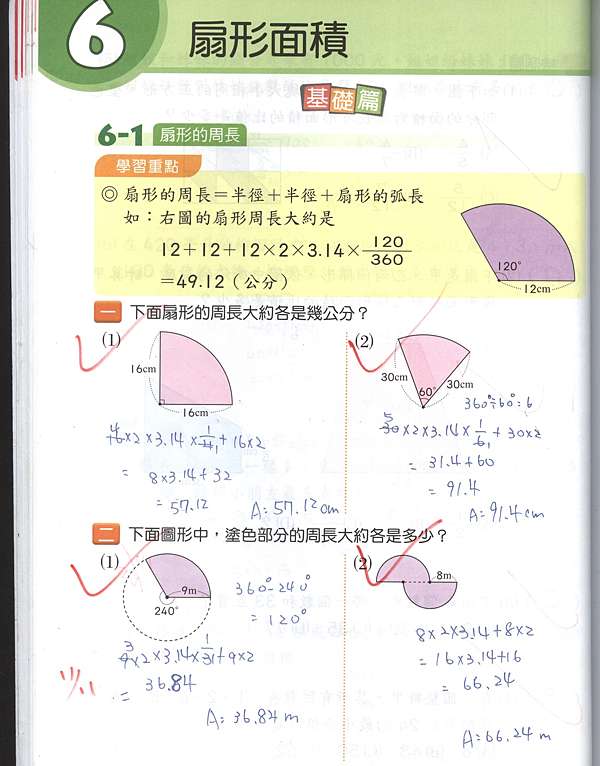 6 扇形面積
基礎篇
6-1 扇形的周長
學習重點
◎ 扇形的周長＝半徑＋半徑＋扇形的弧長
如：右圖的扇形周長大約是
12＋12＋12×2×3.14×120/360
＝49.12（公分）
120°
12cm
一 下面扇形的周長大約各是幾公分？
(1)
16cm
16cm
(2)
30cm
60°
30cm
360°÷60°=6
×2×3.14×1/+16×2
= 8×3.14+32
= 57.12
A: 57.12cm
5
30×2×3.14×1/6+30×2
= 31.4+60
= 91.4
A: 91.4cm
二 下面圖形中，塗色部分的周長大約各是多少？
(1)
9m
240°
360°-240°
= 120°
3
9×2×3.14×1/3+9×2
= 36.84
A: 36.84m
(2)
8m
8×2×3.14+8×2
= 16×3.14+16
= 66.24
A: 66.24m